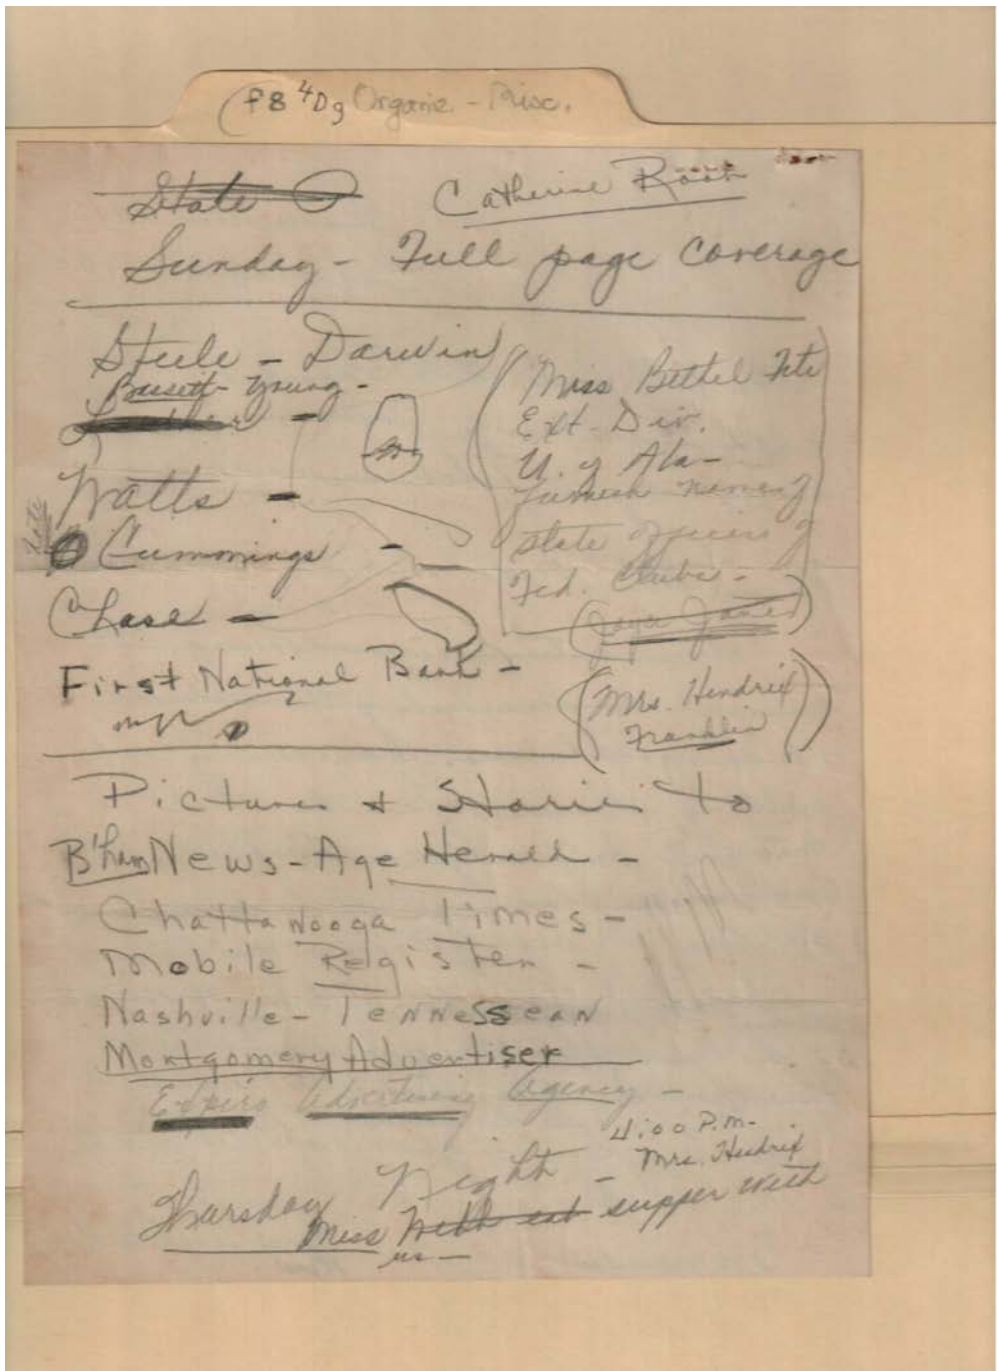 F8 4Dg Organiz - Misc.
State
Catherine
Sunday - Full page coverage
Steele - Darwin
Bassett - Young -
Watts -
Date
Cummings -
Chase -
First National Bank -
Miss Bethel
Ext. Div.
U. of Ala -
Furnish names of
state officers of
Fed. Clubs -
(Mrs. Hendrix
Franklin)
Pictures & Stories to
B'ham News - Age Herald -
Chattanooga Times -
Mobile Register -
Nashville - Tennessean
Montgomery Advertiser
Advertising Agency -
4:00 P.M. -
Mrs. Hendrix
Thursday Night -
Miss supper with
us -